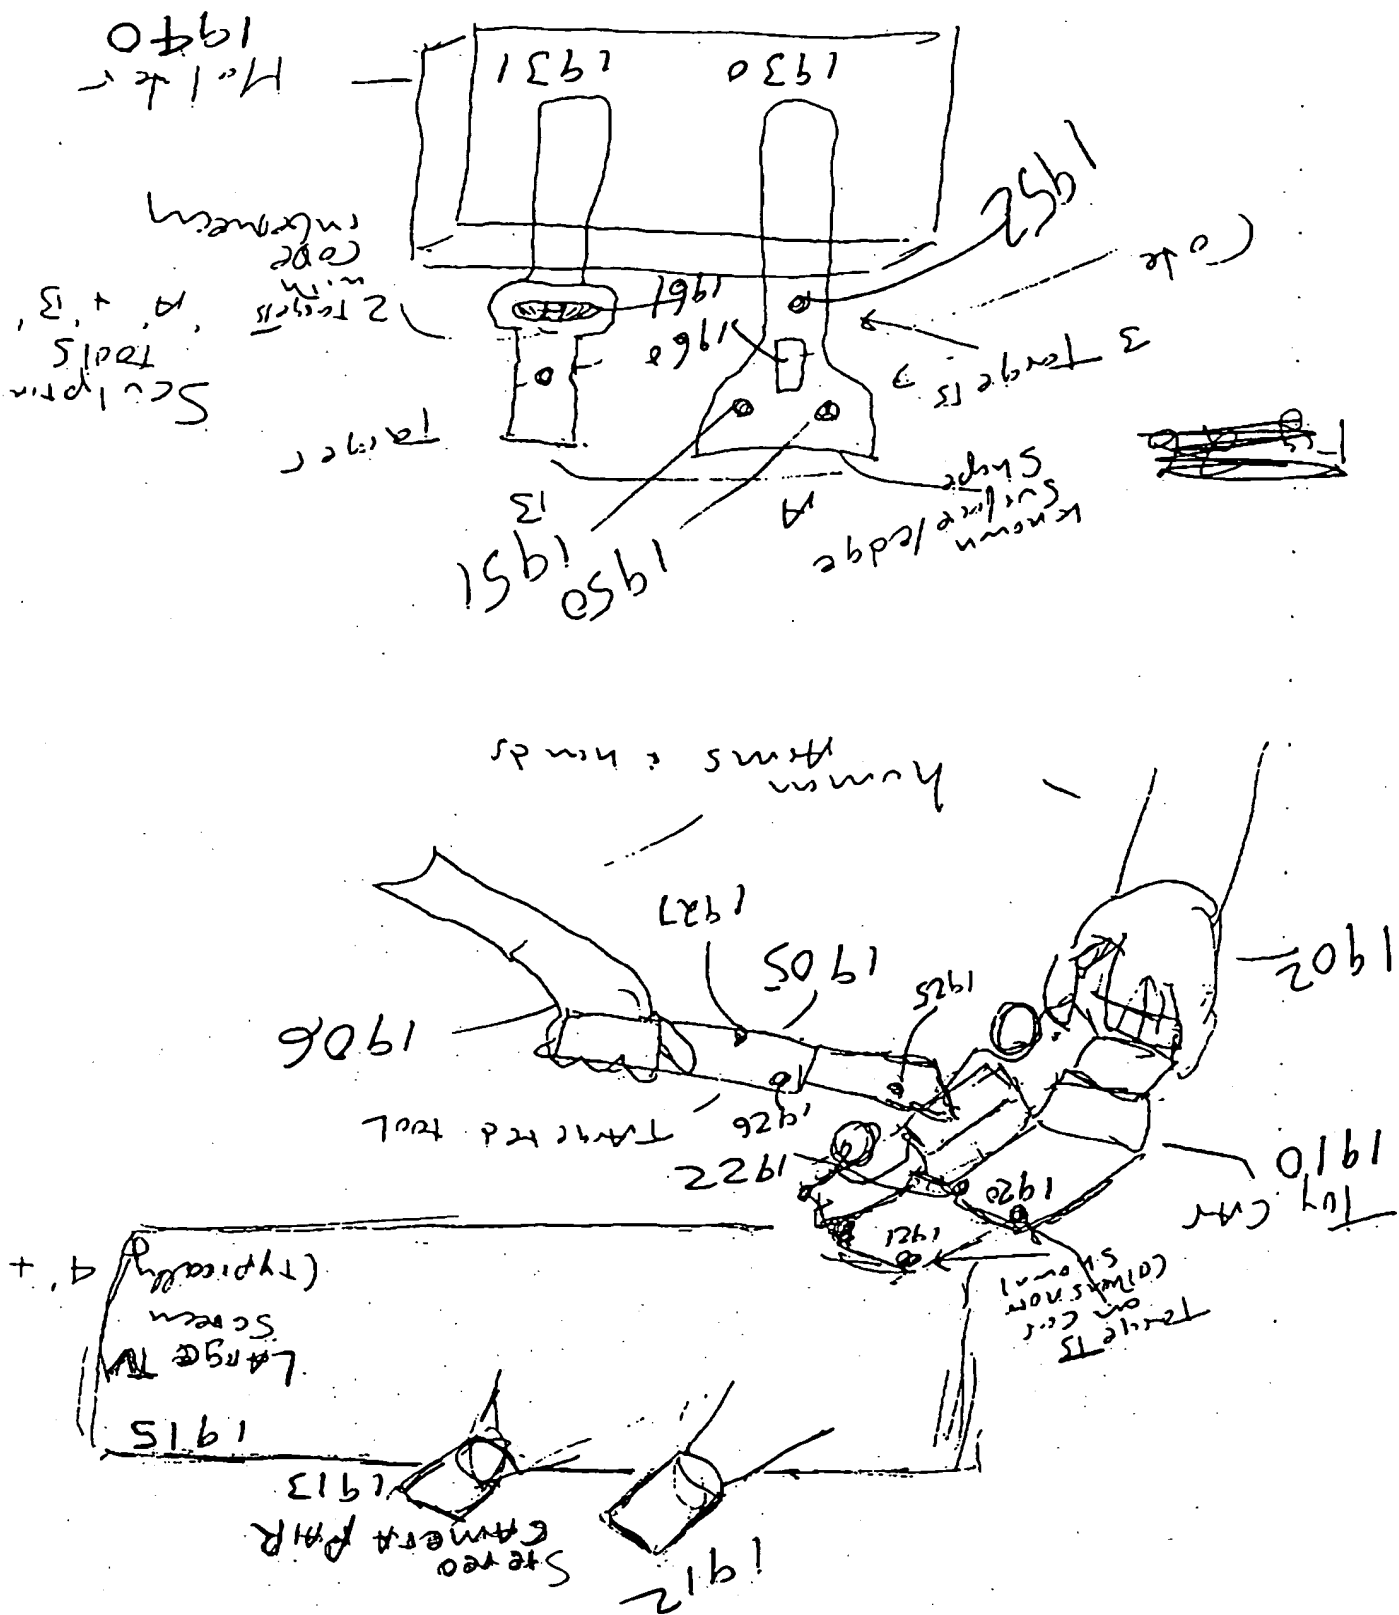 1912
Stereo
CAMERA PAIR
1913
1915
LARGE TV
Screen
(typically 4'+
Targets
on car
(others not
shown)
1921
1920
Toy Car
1910
1922
1926
TARGETED TOOL
1906
1925
1905
1927
1902
human
Arms & hands
1950
1951
known
Surface/edge
Shape
A
B
Target
3 Targets
Sculptin
tools
'A' + 'B'
2 targets
with
CODE
inbetween
1960
1961
Code
1952
1930
1931
Holder
1940